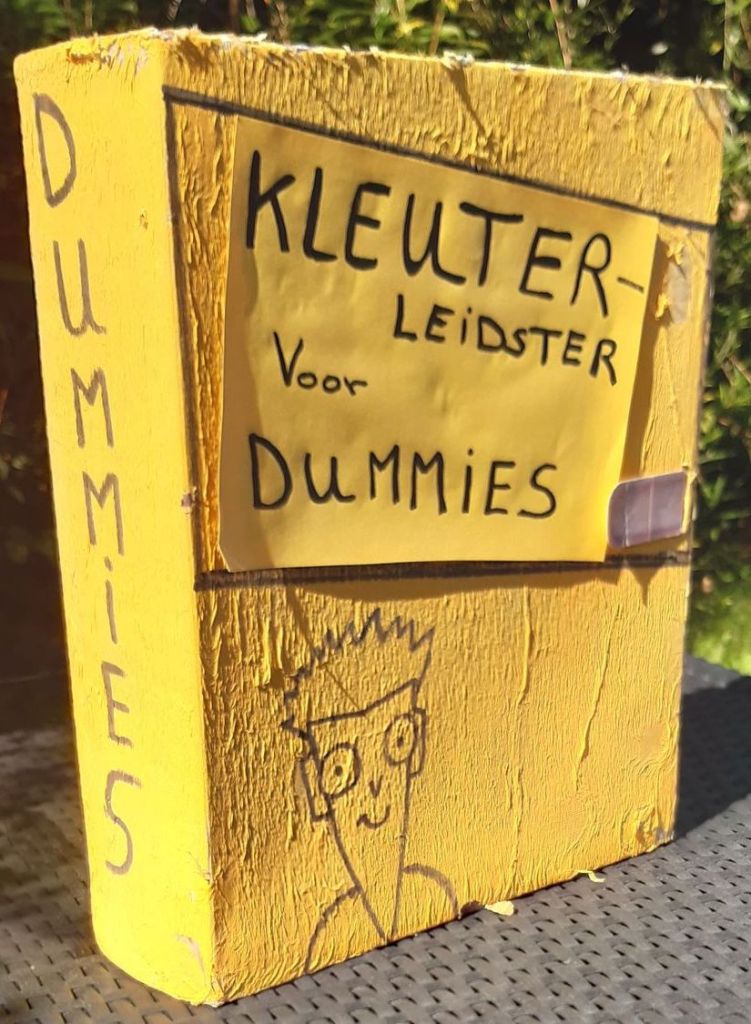 DUMMiES
KLEUTER-
LEiDSTER
Voor
DUMMiES